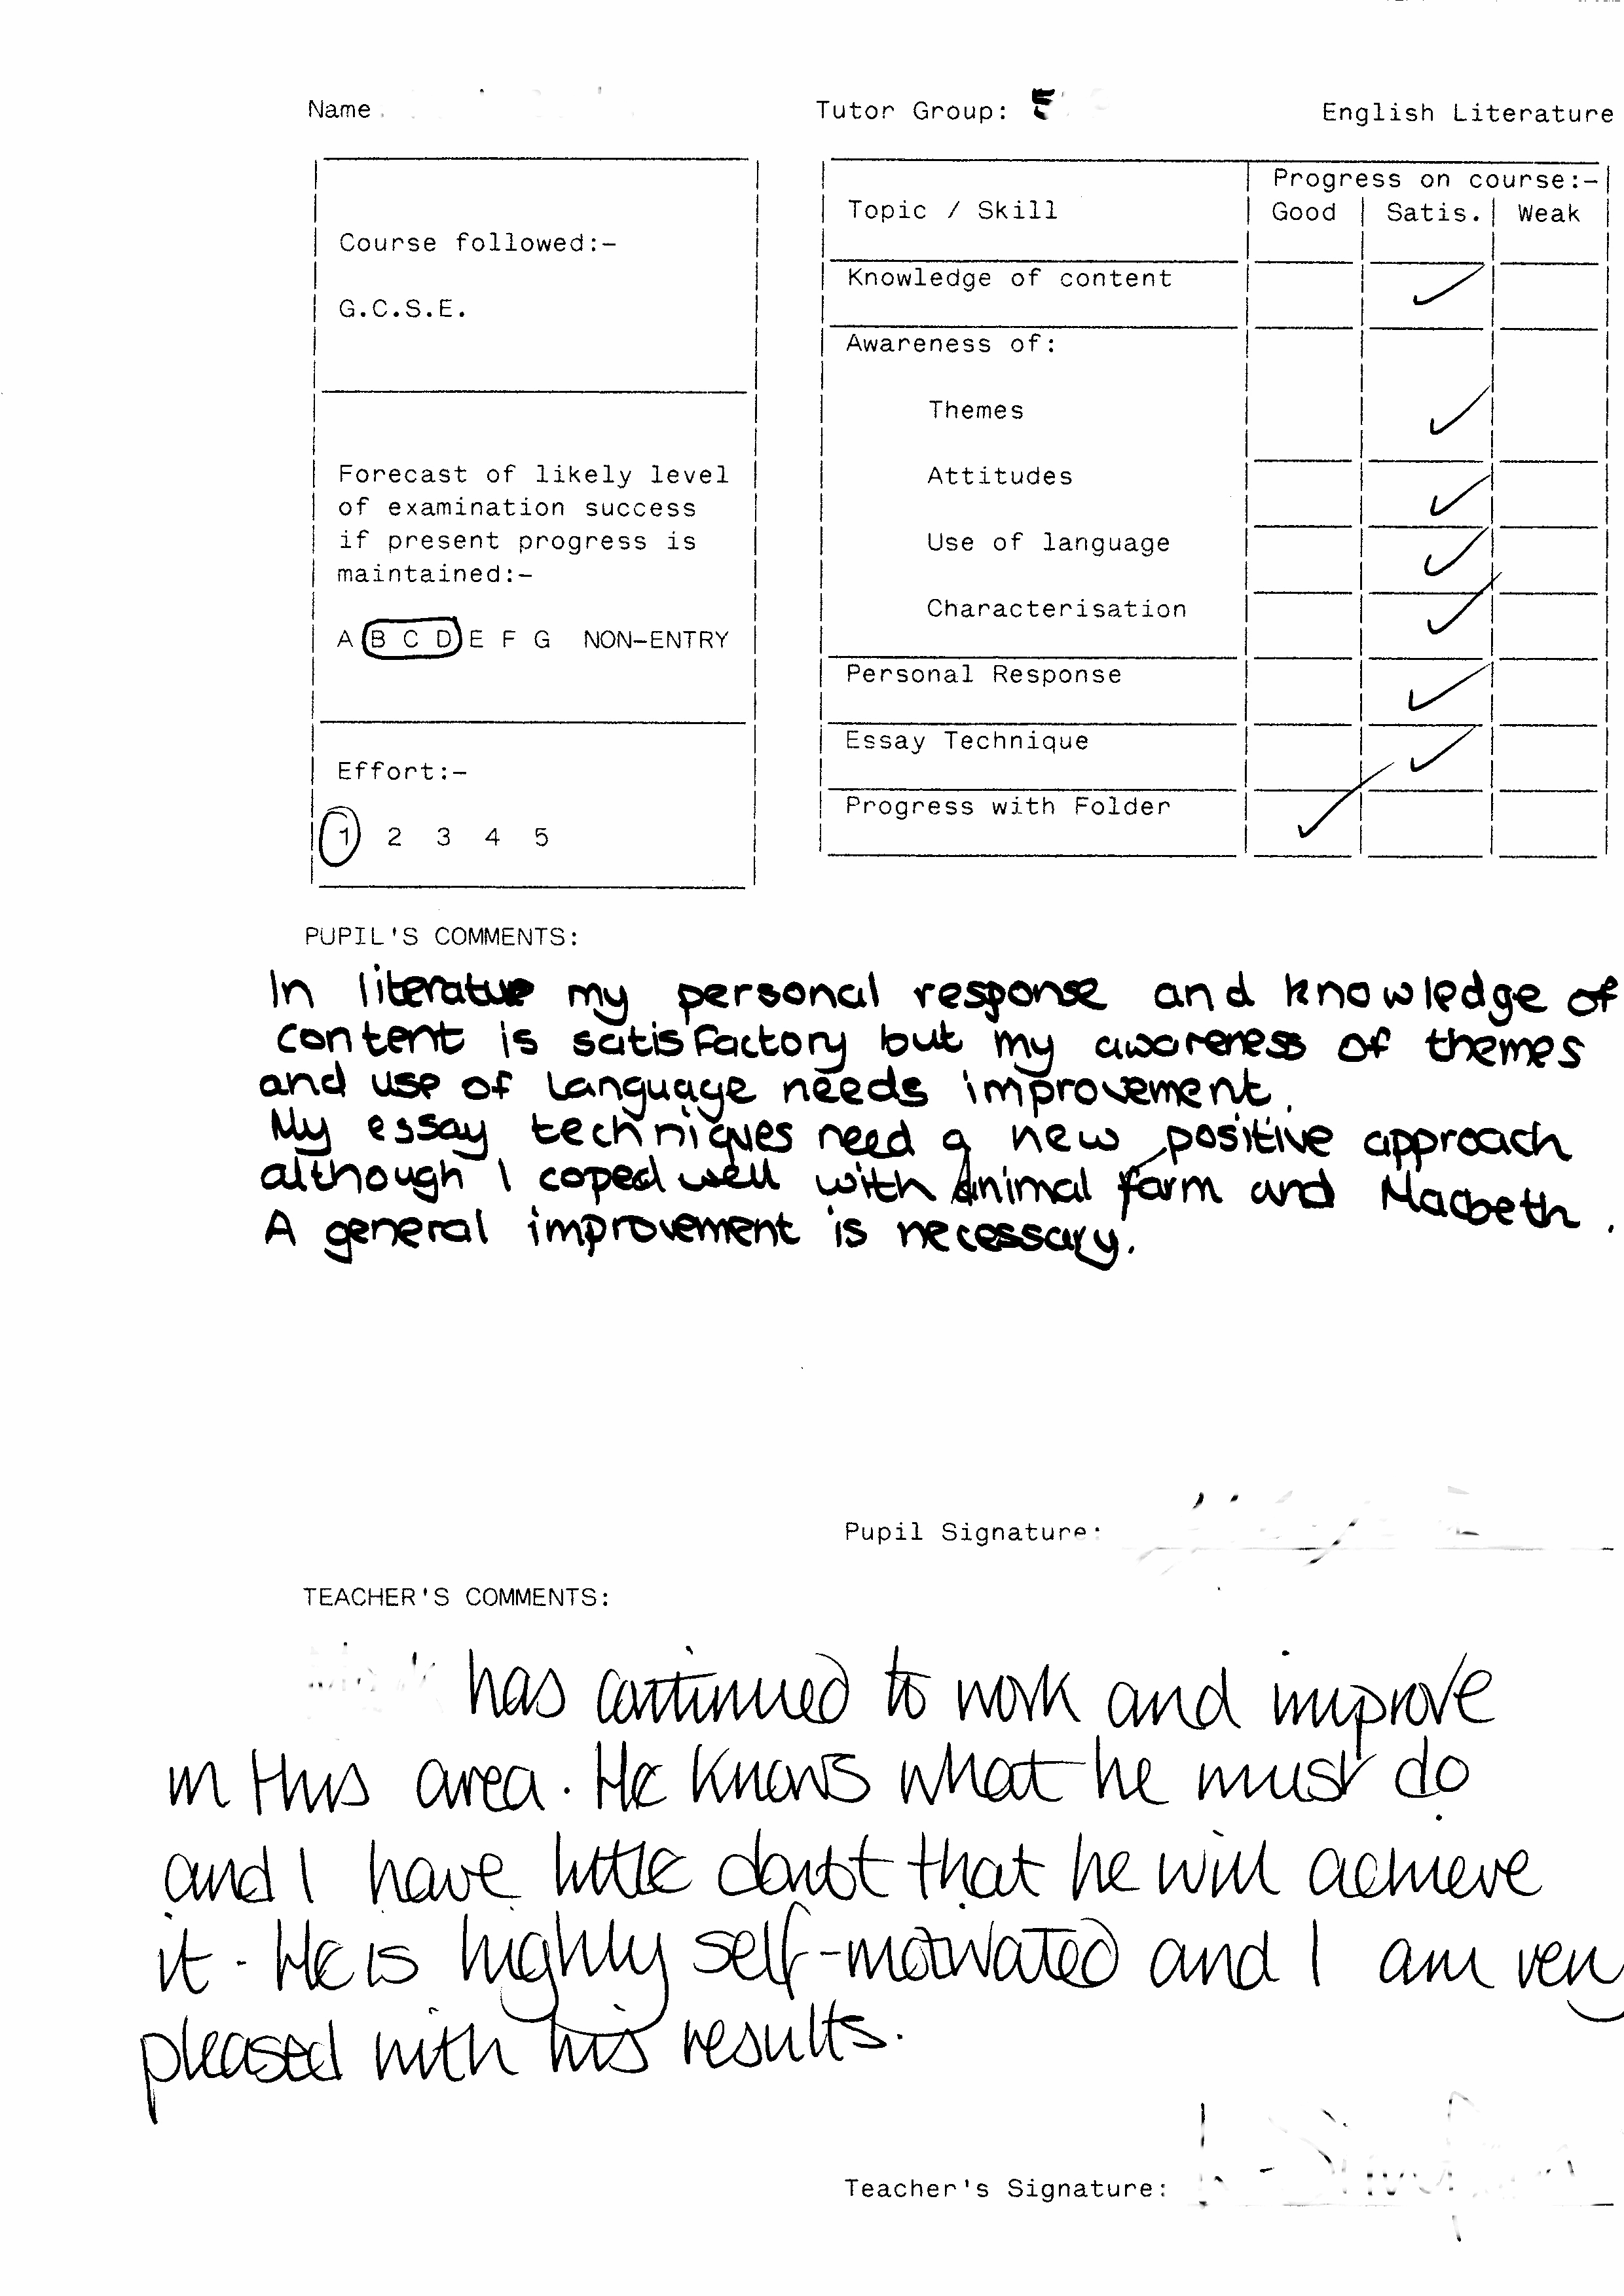 Name Tutor Group: 5 English Literature
Progress on course:-
Topic / Skill Good Satis. Weak
Course followed:-
Knowledge of content
G.C.S.E.
Awareness of:
Themes
Forecast of likely level Attitudes
of examination success
if present progress is Use of language
maintained:-
Characterisation
A B C D E F G NON-ENTRY
Personal Response
Essay Technique
Effort:-
Progress with Folder
1 2 3 4 5
PUPIL'S COMMENTS:
In literature my personal response and knowledge of
content is satisfactory but my awareness of themes
and use of language needs improvement.
My essay techniques need a new positive approach
although I coped well with Animal farm and Macbeth.
A general improvement is necessary.
Pupil Signature:
TEACHER'S COMMENTS:
has continued to work and improve
in this area. He knows what he must do
and I have little doubt that he will achieve
it. He is highly self-motivated and I am very
pleased with his results.
Teacher's Signature: